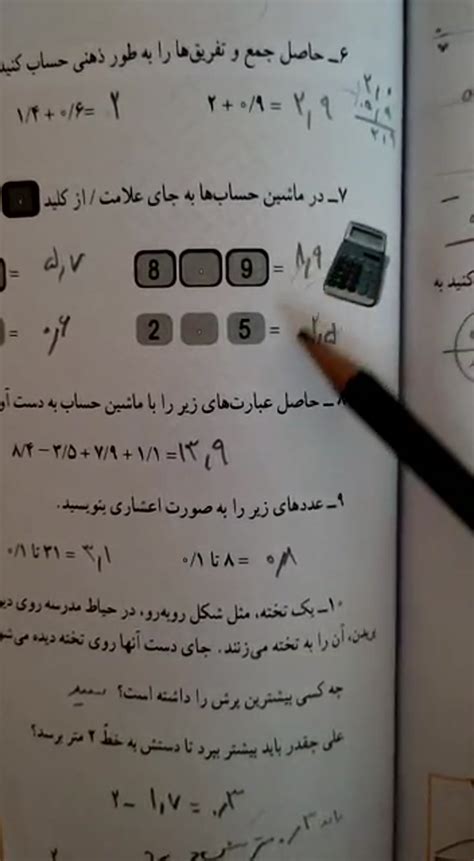 ۶ــ حاصل جمع و تفریق‌ها را به طور ذهنی حساب کنید
۲ + ۰/۹ = ۲,۹
۱/۴ + ۰/۶ = ۲
۲,۰
۰,۹
۲,۹
۷ــ در ماشین حساب‌ها به جای علامت / از کلید .
8 . 9 = ۸,۹
= ۵,۷
2 . 5 = ۲,۵
= ۰,۶
۸ــ حاصل عبارت‌های زیر را با ماشین حساب به دست آو
۸/۴ − ۳/۵ + ۷/۹ + ۱/۱ = ۱۳,۹
۹ــ عددهای زیر را به صورت اعشاری بنویسید.
۸ تا ۰/۱ = ۰,۸
۳۱ تا ۰/۱ = ۳,۱
۱۰ــ یک تخته، مثل شکل روبه‌رو، در حیاط مدرسه روی دیو
بریدن، آن را به تخته می‌زنند. جای دست آنها روی تخته دیده می‌شو
چه کسی بیشترین پرش را داشته است؟
علی چقدر باید بیشتر بپرد تا دستش به خطّ ۲ متر برسد؟
۲ − ۱,۷ = ۰,۳
باید ۰,۳ متر
کنید به